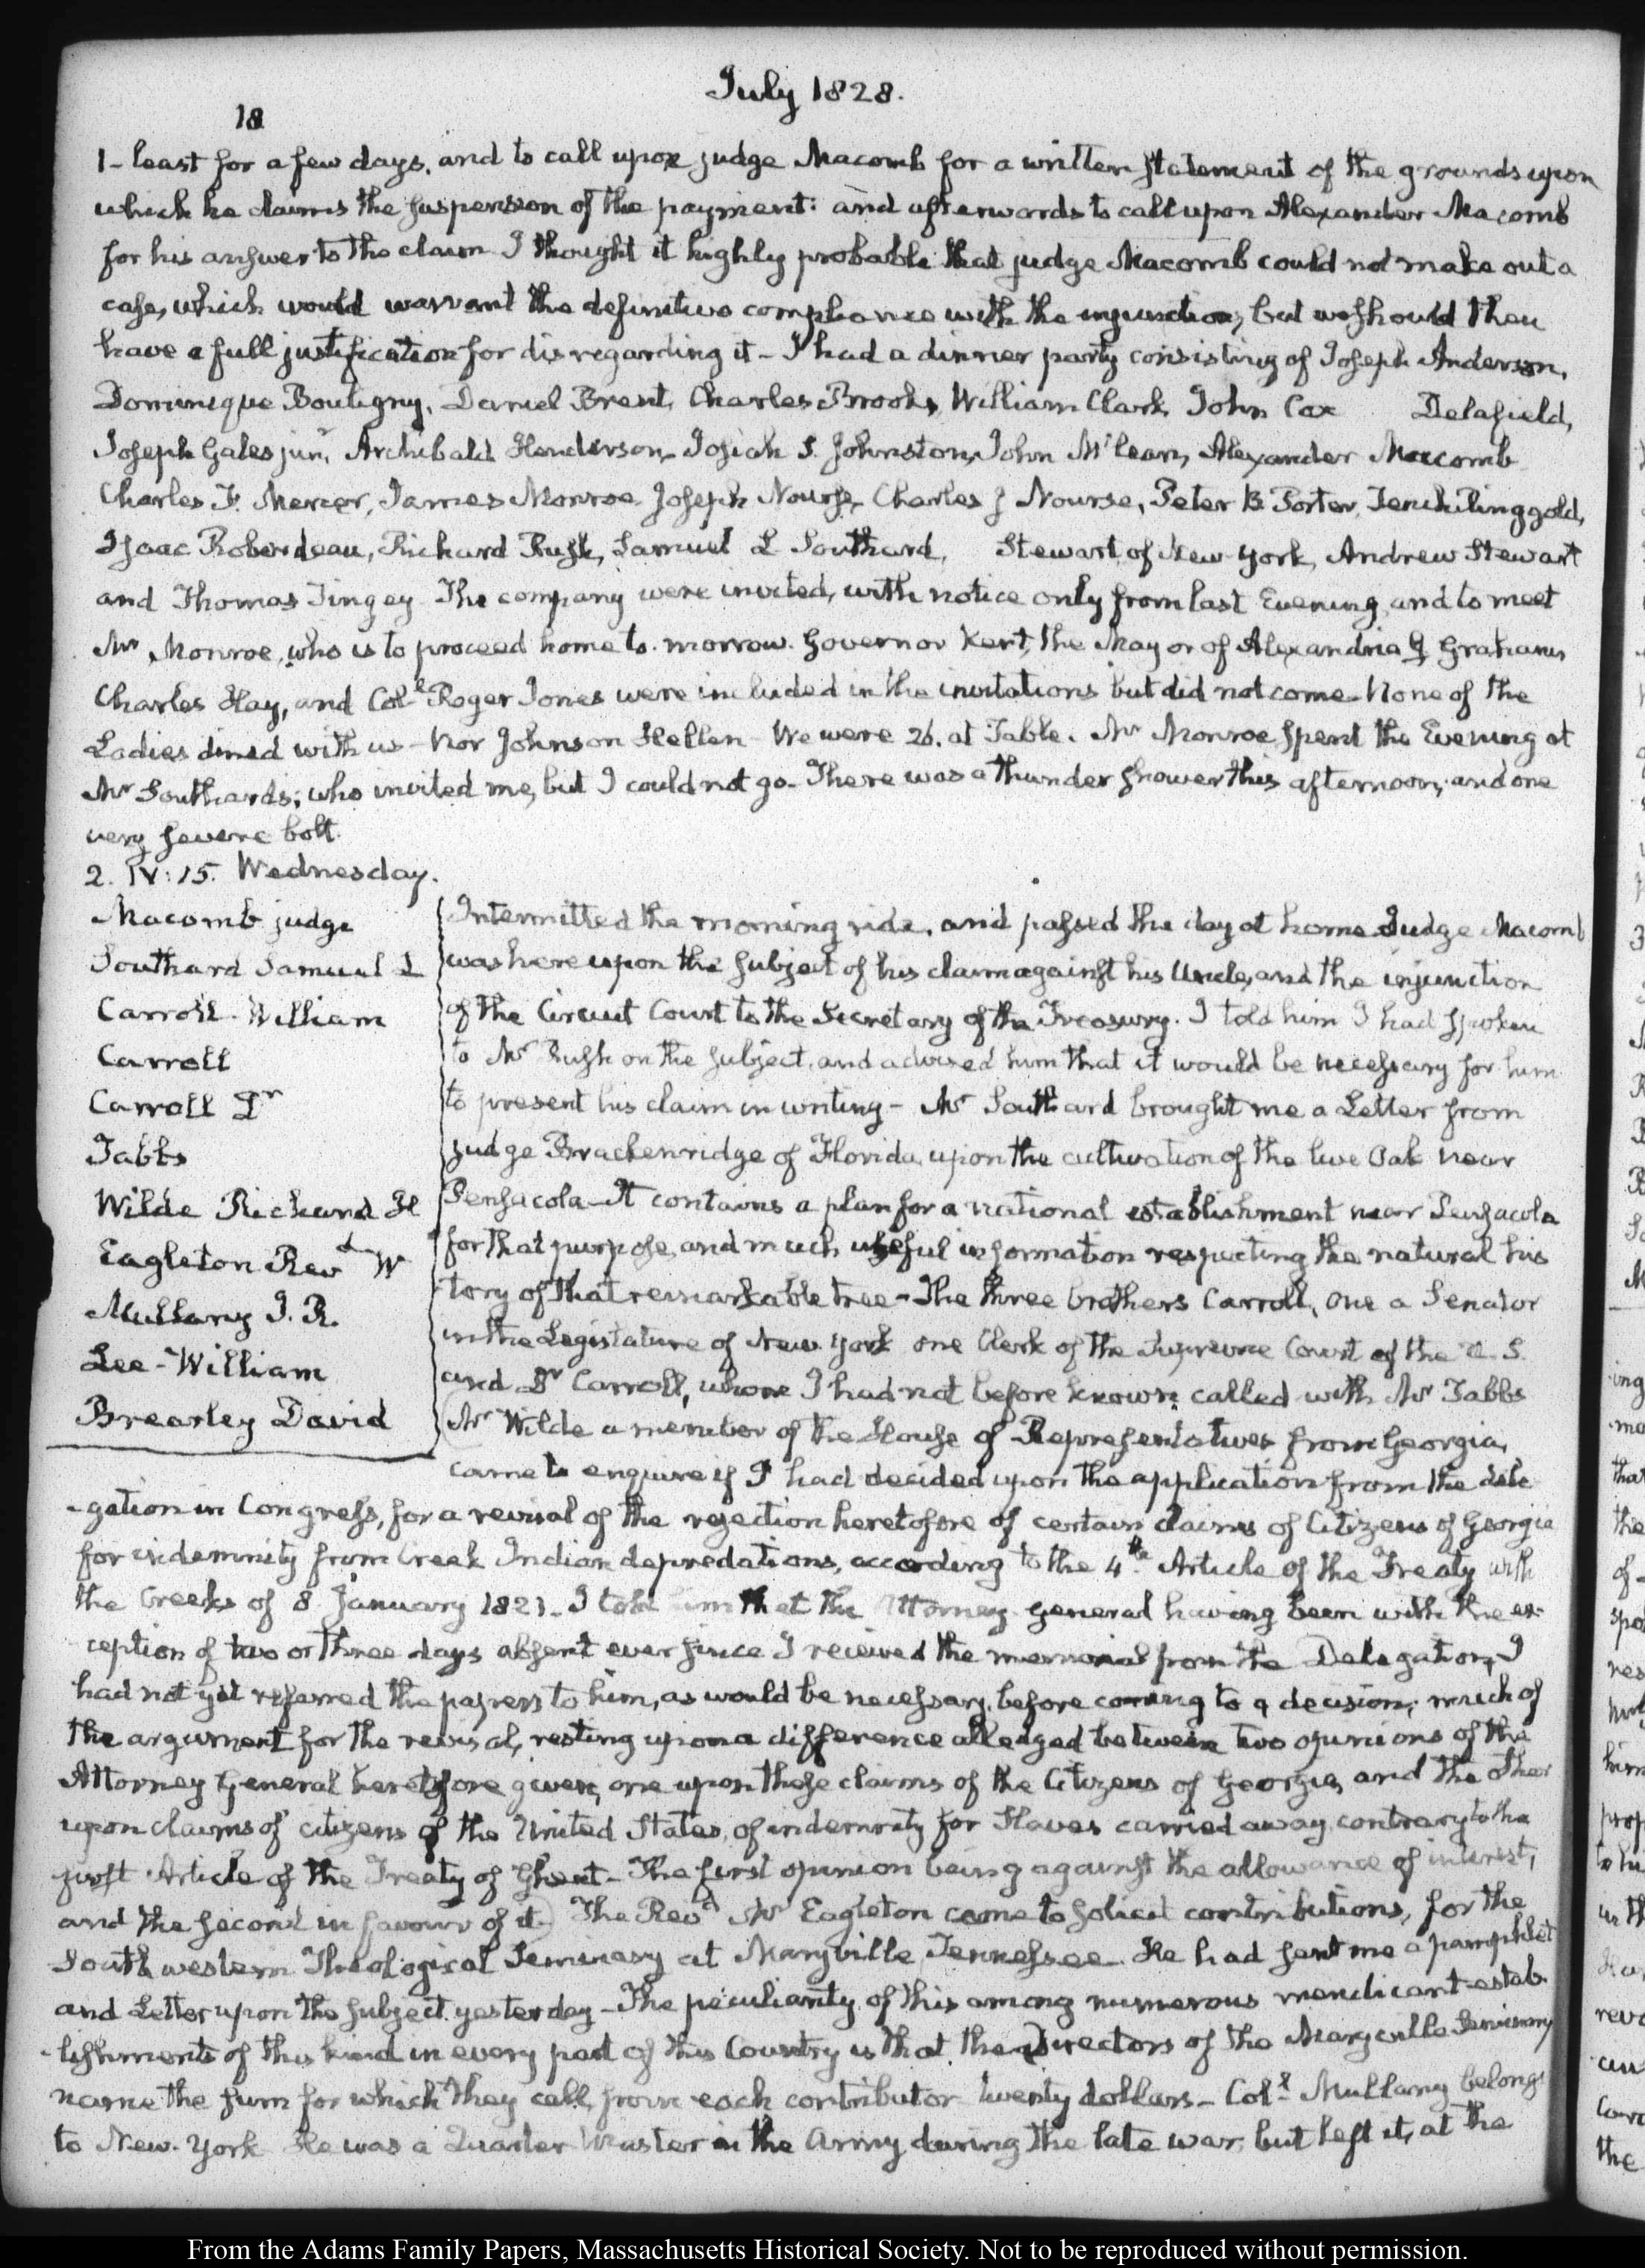 July 1828.
18
1- least for a few days, and to call upon judge Macomb for a written statement of the grounds upon
which he claims the suspension of the payment: and afterwards to call upon Alexander Macomb
for his answer to the claim I thought it highly probable that judge Macomb could not make out a
case, which would warrant the definitive compliance with the injunction, but we should then
have a full justification for disregarding it - I had a dinner party consisting of Joseph Anderson,
Dominique Bouligny, Daniel Brent, Charles Brooks, William Clark, John Cox Delafield,
Joseph Gales junr, Archibald Henderson, Josiah S. Johnston, John McLean, Alexander Macomb
Charles F. Mercer, James Monroe Joseph Nourse, Charles J Nourse, Peter B Porter, Tench Ringgold,
Isaac Roberdeau, Richard Rush, Samuel L Southard, Stewart of New York, Andrew Stewart
and Thomas Tingey The company were invited, with notice only from last Evening, and to meet
Mr Monroe, who is to proceed home to-morrow. Governor Kent, the Mayor of Alexandria G Graham
Charles Hay, and Coll Roger Jones were included in the invitations but did not come - None of the
Ladies dined with us - Nor Johnson Hellen - We were 26. at Table. Mr Monroe spent the Evening at
Mr Southard's; who invited me, but I could not go - There was a thunder shower this afternoon, and one
very severe bolt.
2. IV: 15. Wednesday.
Macomb judge
Southard Samuel L
Carroll - William
Carroll
Carroll Dr
Tabbs
Wilde Richard H
Eagleton Revd W
Mullany J. R.
Lee - William
Brearley David
Intermitted the morning ride, and passed the day at home Judge Macomb
was here upon the subject of his claim against his Uncle, and the injunction
of the Circuit Court to the Secretary of the Treasury. I told him I had spoken
to Mr Rush on the subject, and advised him that it would be necessary for him
to present his claim in writing - Mr Southard brought me a Letter from
judge Brackenridge of Florida, upon the cultivation of the live Oak near
Pensacola - It contains a plan for a national establishment near Pensacola
for that purpose, and much useful information respecting the natural his
tory of that remarkable tree - The three brothers Carroll, one a Senator
in the Legislature of New York one Clerk of the Supreme Court of the U.S.
and Dr Carroll, whom I had not before known, called with Mr Tabbs
(Mr Wilde a member of the House of Representatives from Georgia,
came to enquire if I had decided upon the application from the dele
-gation in Congress, for a revisal of the rejection heretofore of certain claims of Citizens of Georgia
for indemnity from Creek Indian depredations, according to the 4th. Article of the Treaty with
the Creeks of 8 January 1821 - I told him that the Attorney General having been with the ex-
ception of two or three days absent ever since I received the memorial from the Delegation, I
had not yet referred the papers to him, as would be necessary, before coming to a decision; much of
the argument for the revisal, resting upon a difference alledged between two opinions of the
Attorney General heretofore given, one upon these claims of the Citizens of Georgia, and the other
upon claims of citizens of the United States, of indemnity for Slaves carried away, contrary to the
first Article of the Treaty of Ghent - The first opinion being against the allowance of interest,
and the second in favour of it.) The Revd Mr Eagleton came to solicit contributions, for the
South western Theological Seminary at Maryville Tennessee. He had sent me a pamphlet
and Letter upon the subject yesterday - The peculiarity of this among numerous mendicant estab-
-lishments of this kind in every part of this Country is that the Directors of the Maryville Seminary
name the sum for which they call, from each contributor twenty dollars - Coll Mullany belongs
to New-York He was a Quarter Master in the Army during the late war, but left it, at the
From the Adams Family Papers, Massachusetts Historical Society. Not to be reproduced without permission.